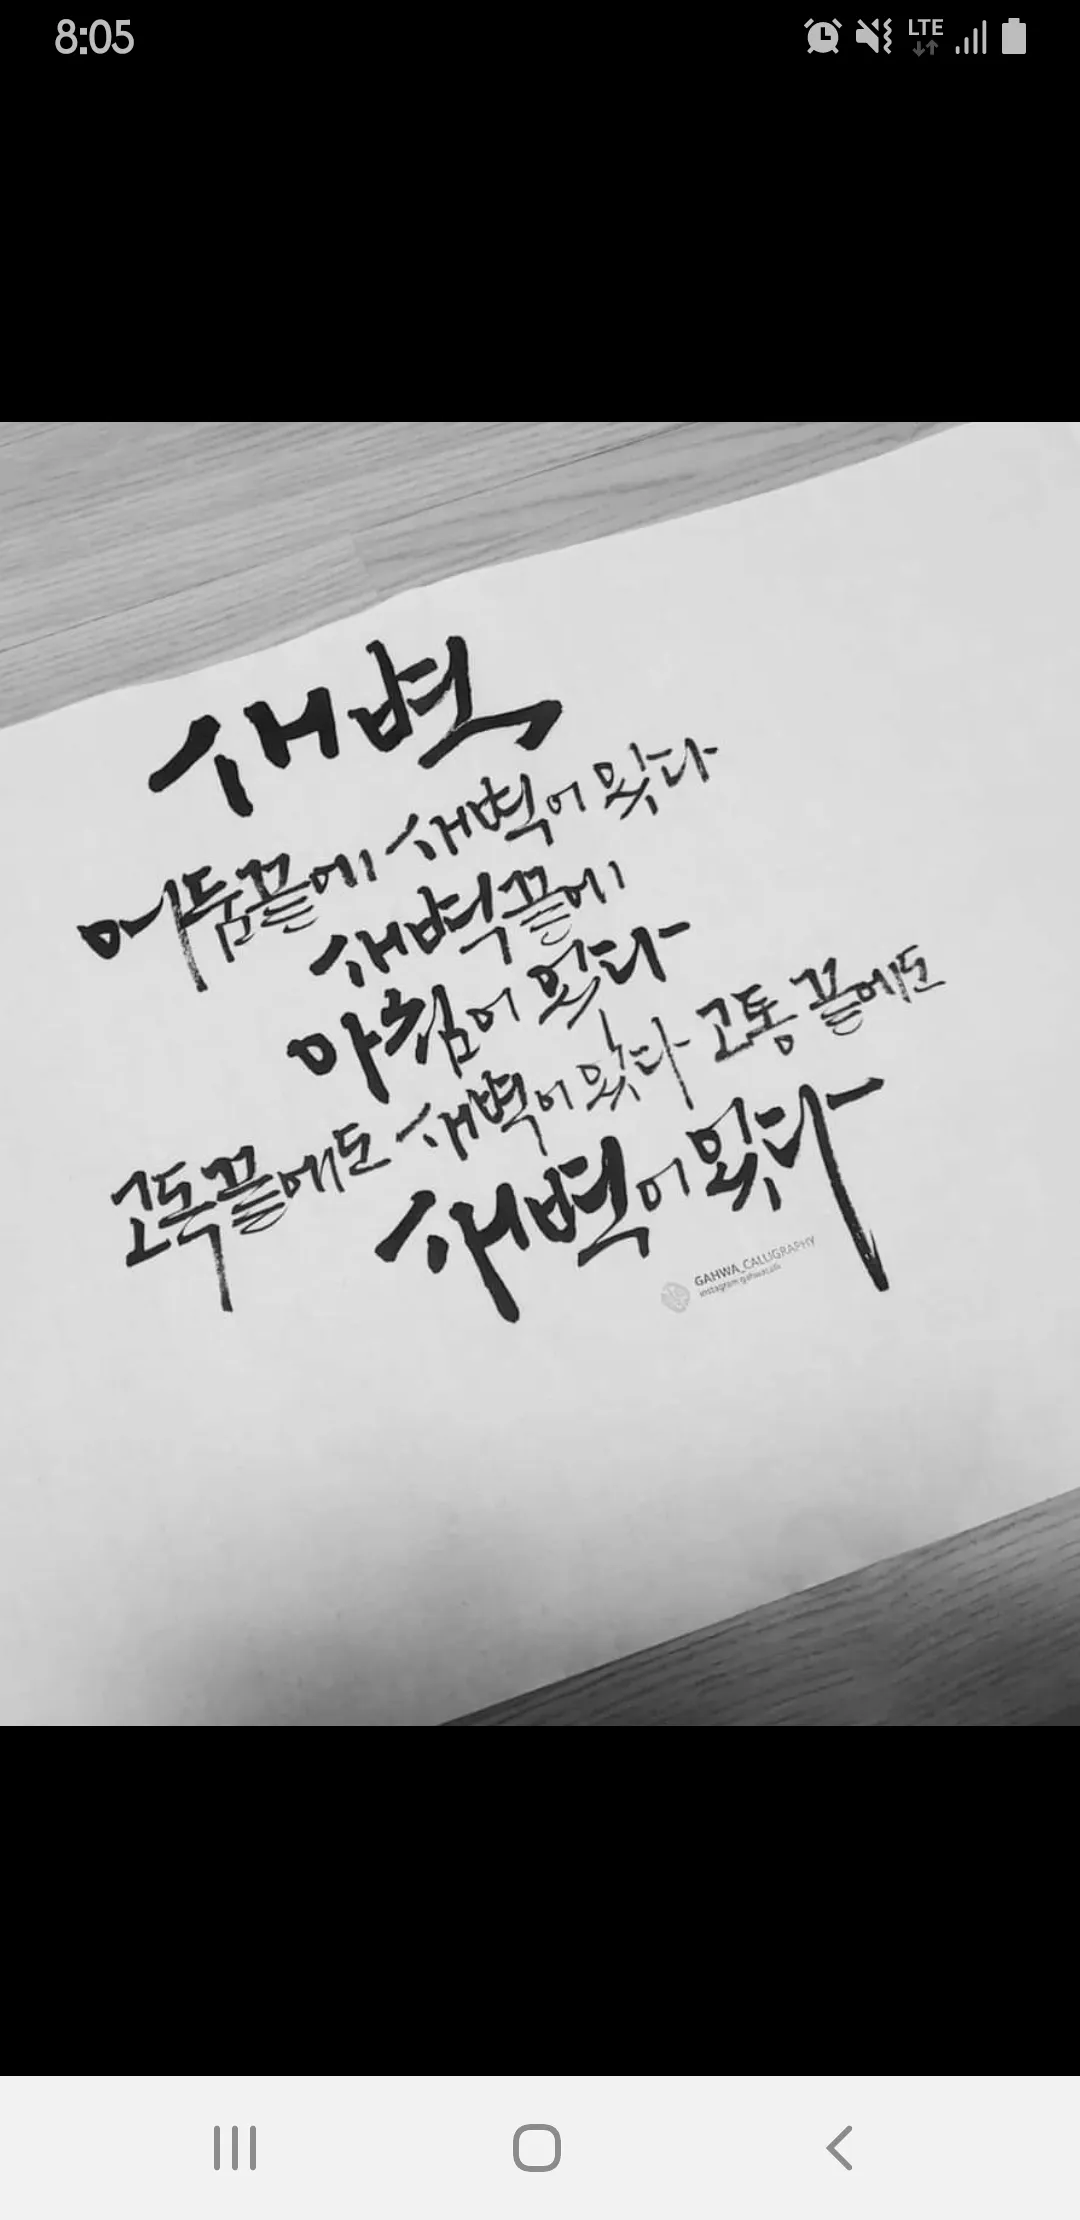 8:05
LTE
새벽
어둠끝에 새벽이 왔다
새벽끝에
아침이 왔다
고독끝에도 새벽이 왔다 고통 끝에도
새벽이 왔다
GAHWA_CALLIGRAPHY
instagram gahwacalli